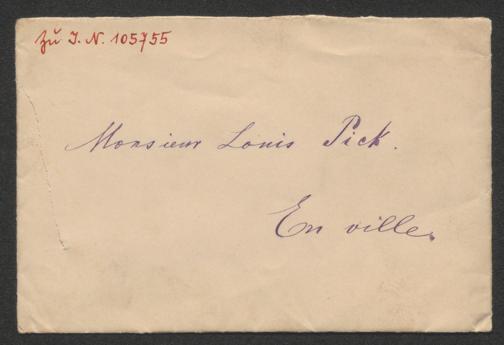 Zu I. N. 105755
Monsieur Louis Pick.
En ville.